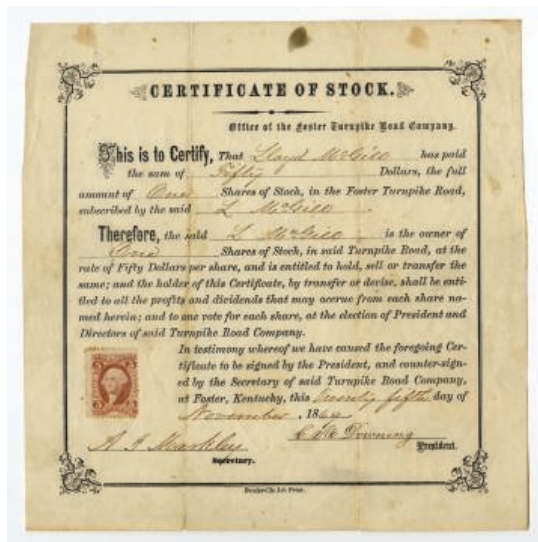 CERTIFICATE OF STOCK.
Office of the Foster Turnpike Road Company.
This is to Certify, That Lloyd McGill has paid
the sum of Fifty Dollars, the full
amount of One Shares of Stock, in the Foster Turnpike Road,
subscribed by the said L McGill.
Therefore, the said L McGill is the owner of
One Shares of Stock, in said Turnpike Road, at the
rate of Fifty Dollars per share, and is entitled to hold, sell or transfer the
same; and the holder of this Certificate, by transfer or devise, shall be enti-
tled to all the profits and dividends that may accrue from each share na-
med herein; and to one vote for each share, at the election of President and
Directors of said Turnpike Road Company.
In testimony whereof we have caused the foregoing Cer-
tificate to be signed by the President, and counter-sign-
ed by the Secretary of said Turnpike Road Company,
at Foster, Kentucky, this twenty fifth day of
November, 186
Downing
President.
A Markley
Secretary.
Job Print.